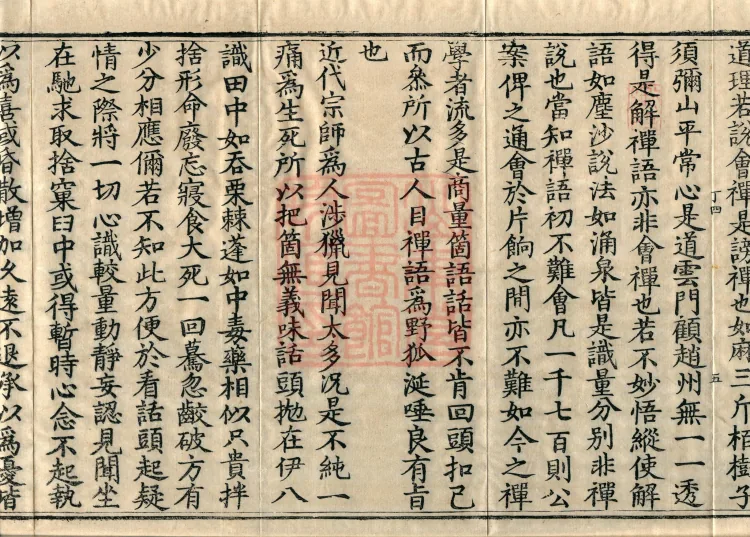 道理若說會禪是謗禪也如麻三斤栢樹子
須彌山平常心是道雲門顧趙州無一一透
得是解禪語亦非會禪也若不妙悟縱使解
語如塵沙說法如涌泉皆是識量分別非禪
說也當知禪語初不難會凡一千七百則公
案俾之通會於片餉之間亦不難如今之禪
學者流多是商量箇語話皆不肯回頭扣己
而叅所以古人目禪語爲野狐涎唾良有旨
也
近代宗師爲人涉獵見聞太多況是不純一
痛爲生死所以把箇無義味話頭拋在伊八
識田中如吞栗棘蓬如中毒藥相似只貴拌
捨形命廢忘寢食大死一回驀忽齩破方有
少分相應儞若不知此方便於看話頭起疑
情之際將一切心識較量動靜妄認見聞坐
在馳求取捨窠臼中或得暫時心念不起執
以爲喜或昏散增加久遠不退承以爲憂皆
丁四
五